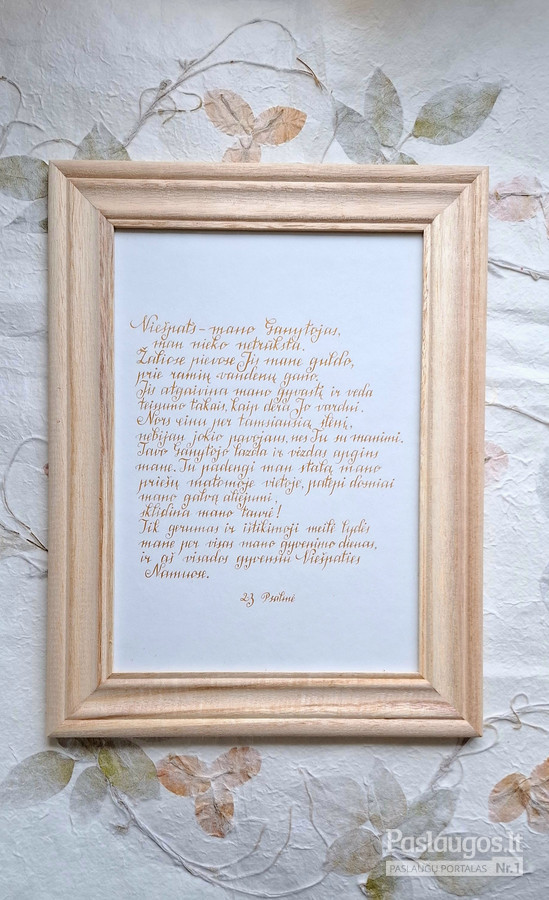 Viešpats – mano Ganytojas,
man nieko netrūksta.
Žaliose pievose Jis mane guldo,
prie ramių vandenų gano.
Jis atgaivina mano gyvastį ir veda
teisumo takais, kaip dera Jo vardui.
Nors einu per tamsiausią slėnį,
nebijau jokio pavojaus, nes Tu su manimi.
Tavo Ganytojo lazda ir vėzdas apgins
mane. Tu padengi man stalą mano
priešų matomoje vietoje, patepi dosniai
mano galvą aliejumi,
sklidina mano taurė!
Tik gerumas ir ištikimoji meilė lydės
mane per visas mano gyvenimo dienas,
ir aš visados gyvensiu Viešpaties
Namuose.
23 Psalmė
Paslaugos.lt
PASLAUGŲ PORTALAS Nr.1